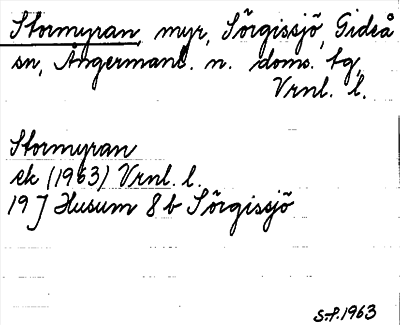 Stormyran, myr, Sörgissjö, Gideå
sn, Ångermanl. n. doms. tg,
Vrnl. l.
Stormyran
ek (1963) Vrnl. l.
19 J Husum 8 b Sörgissjö
S.P. 1963